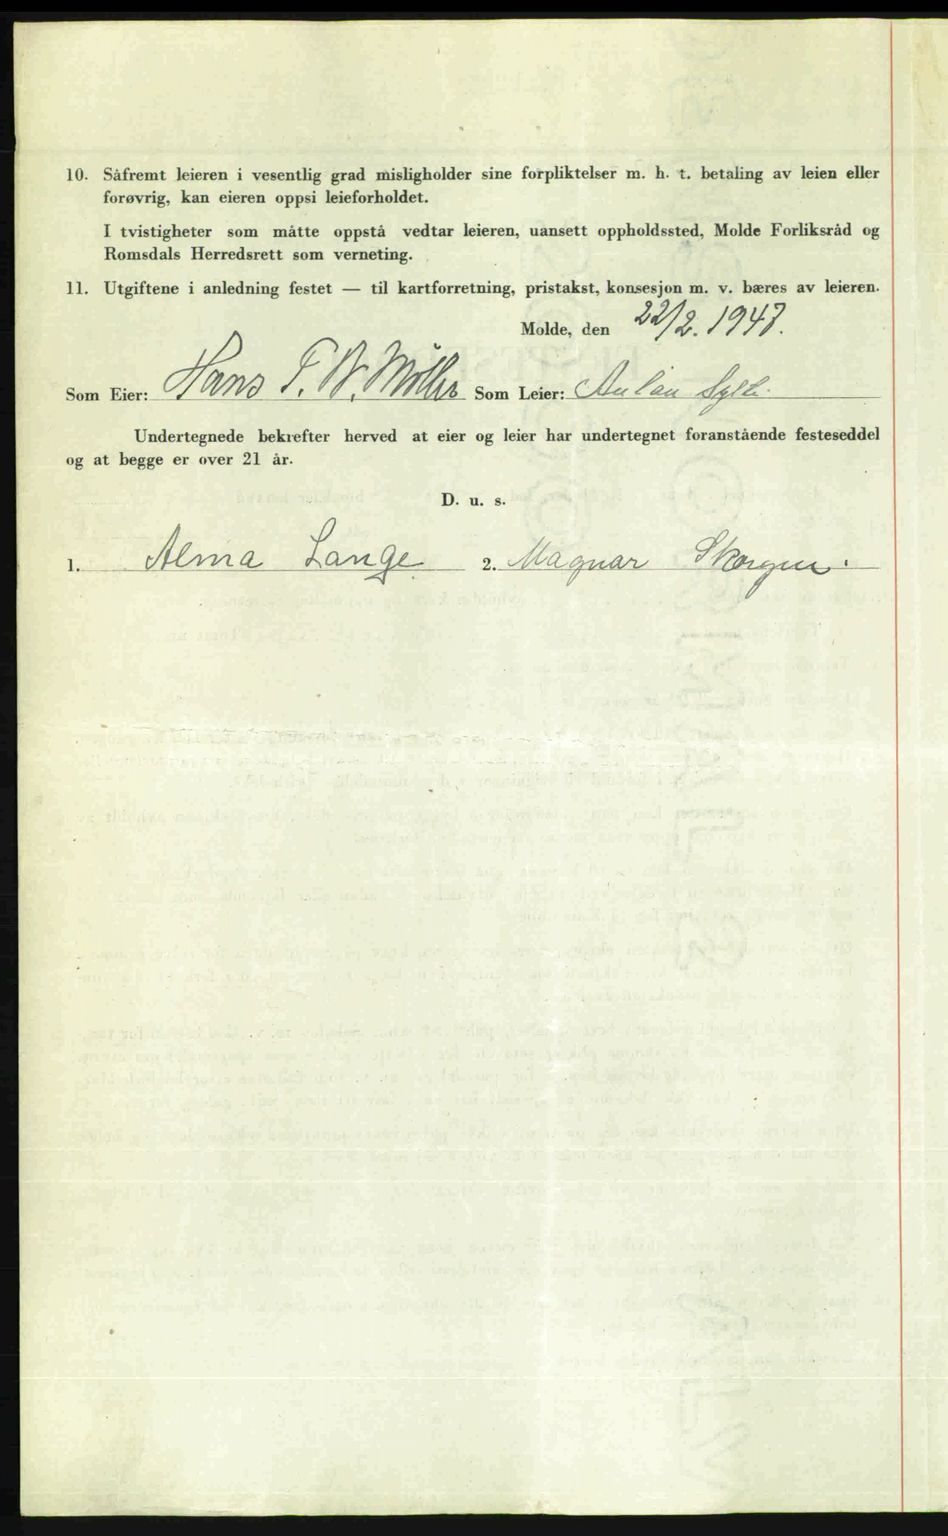 10. Såfremt leieren i vesentlig grad misligholder sine forpliktelser m. h. t. betaling av leien eller
forøvrig, kan eieren oppsi leieforholdet.
I tvistigheter som måtte oppstå vedtar leieren, uansett oppholdssted, Molde Forliksråd og
Romsdals Herredsrett som verneting.
11. Utgiftene i anledning festet — til kartforretning, pristakst, konsesjon m. v. bæres av leieren.
Molde, den 22/2. 1947.
Som Eier: Hans T. W. Møller Som Leier:
Undertegnede bekrefter herved at eier og leier har undertegnet foranstående festeseddel
og at begge er over 21 år.
D. u. s.
1. Alma Lange 2. Magnar Skorgen.